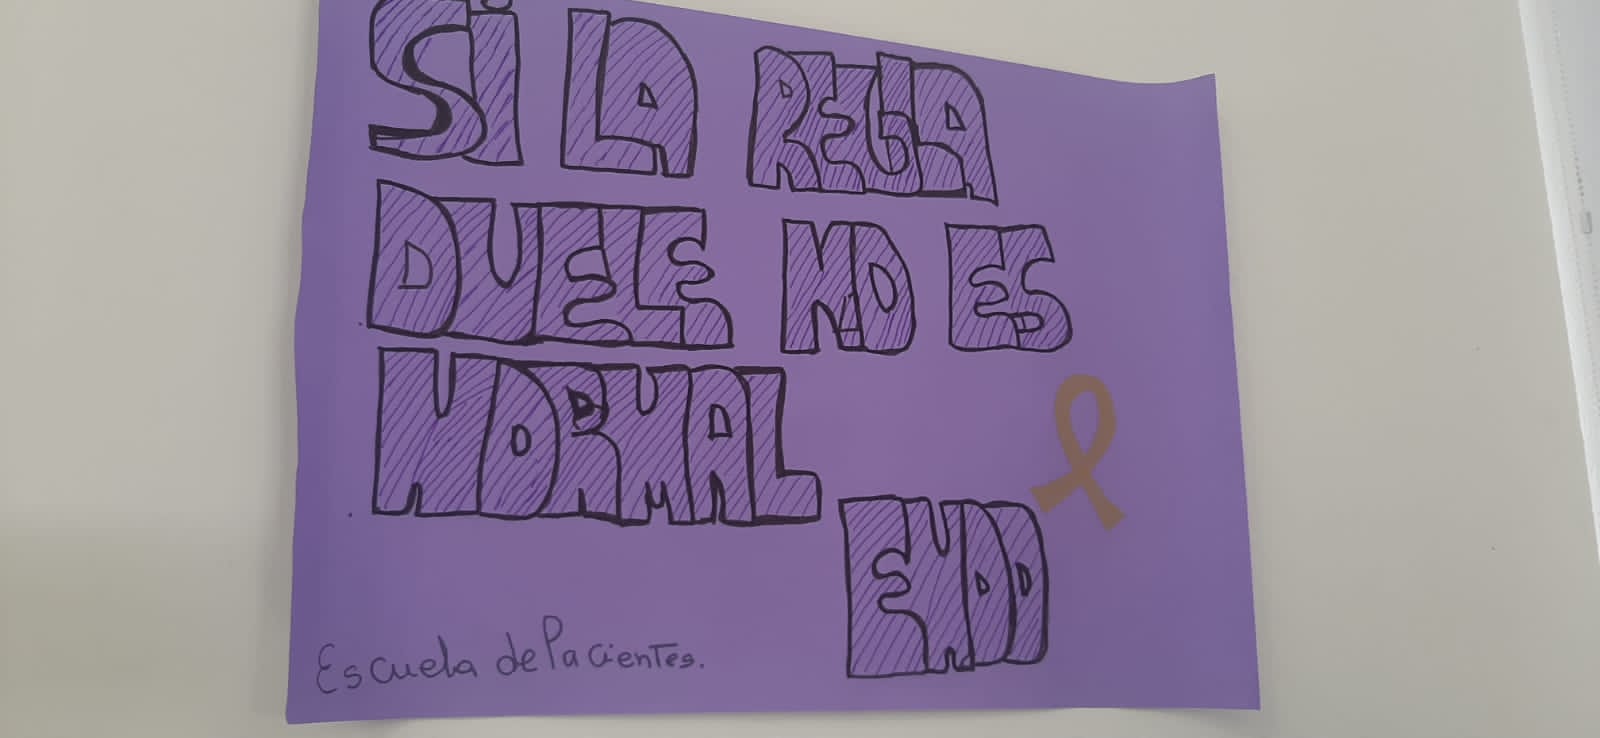 Si LA REGLA
DUELE NO ES
NORMAL
ENDO
Escuela de Pacientes.